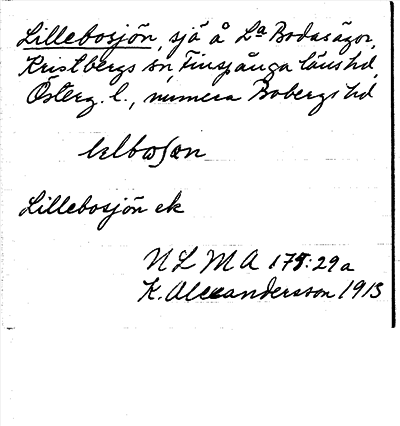 Lillebosjön, sjö å La Bodasägor,
Kristbergs sn, Finspånga länshd,
Österg. l., numera Bobergs hd
Lillebosjön ek
NLMA 175:29a
K. Alexandersson 1913